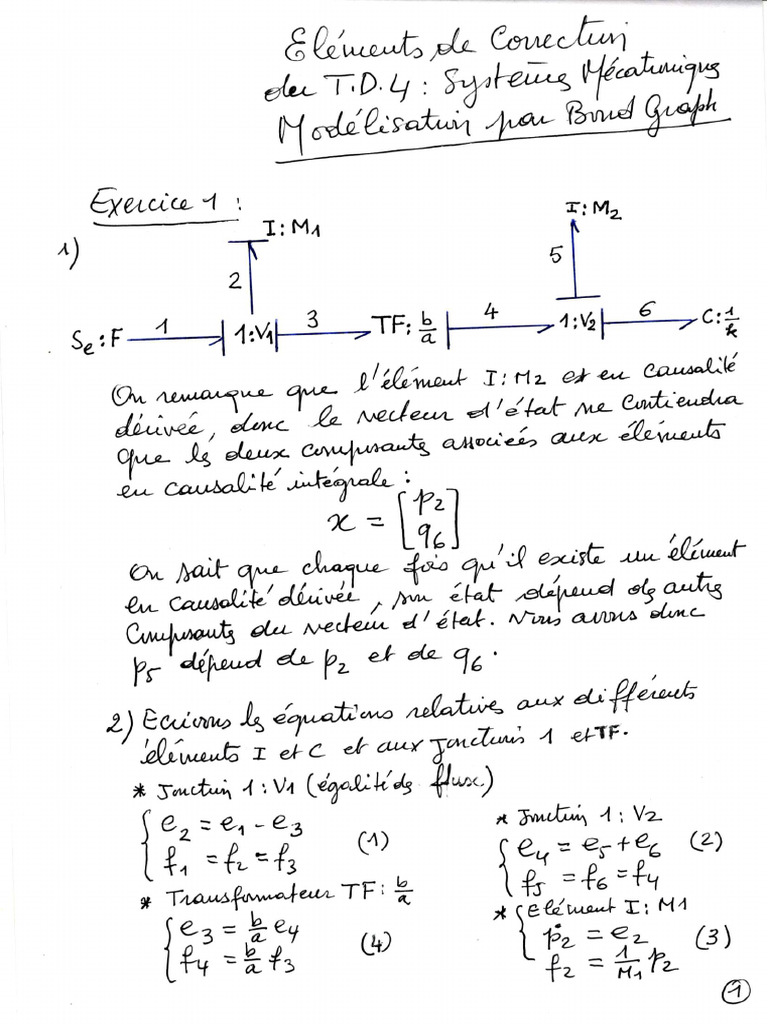 Eléments de Correction
du T.D.4 : Systèmes Mécatroniques
Modélisation par Bond Graph
Exercice 1 :
1)
I: M1
I: M2
2
5
Se : F
1
1:V1
3
TF: b/a
4
1:V2
6
C: 1/k
On remarque que l'élément I: M2 est en causalité
dérivée, donc le vecteur d'état ne contiendra
que les deux composants associées aux éléments
en causalité intégrale :
x = [p2
q6]
On sait que chaque fois qu'il existe un élément
en causalité dérivée, son état dépend des autres
composants du vecteur d'état. Nous avons donc
p5 dépend de p2 et de q6.
2) Ecrivons les équations relatives aux différents
éléments I et C et aux jonctions 1 et TF.
* Jonction 1 : V1 (égalité des flux)
e2 = e1 - e3
f1 = f2 = f3 (1)
* Jonction 1 : V2
e4 = e5 + e6 (2)
f5 = f6 = f4
* Transformateur TF: b/a
e3 = b/a e4
f4 = b/a f3 (4)
* Elément I: M1
ṗ2 = e2 (3)
f2 = 1/M1 p2
1